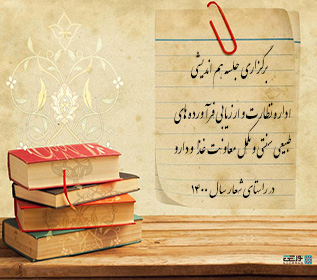 برگزاری جلسه هم اندیشی
اداره نظارت و ارزیابی فرآورده های
طبیعی سنتی و مکمل معاونت غذا و دارو
در راستای شعار سال ۱۴۰۰